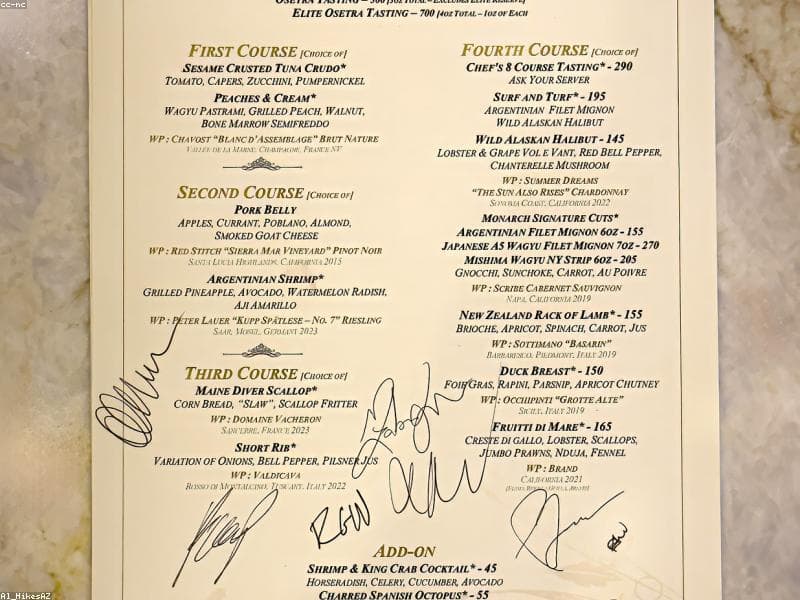 ELITE OSETRA TASTING – 700 [4OZ TOTAL – 1OZ OF EACH]
FIRST COURSE [CHOICE OF]
SESAME CRUSTED TUNA CRUDO*
TOMATO, CAPERS, ZUCCHINI, PUMPERNICKEL
PEACHES & CREAM*
WAGYU PASTRAMI, GRILLED PEACH, WALNUT,
BONE MARROW SEMIFREDDO
WP : CHAVOST "BLANC D'ASSEMBLAGE" BRUT NATURE
VALLÉE DE LA MARNE, CHAMPAGNE, FRANCE NV
SECOND COURSE [CHOICE OF]
PORK BELLY
APPLES, CURRANT, POBLANO, ALMOND,
SMOKED GOAT CHEESE
WP : RED STITCH "SIERRA MAR VINEYARD" PINOT NOIR
SANTA LUCIA HIGHLANDS, CALIFORNIA 2015
ARGENTINIAN SHRIMP*
GRILLED PINEAPPLE, AVOCADO, WATERMELON RADISH,
AJI AMARILLO
WP : PETER LAUER "KUPP SPÄTLESE – NO. 7" RIESLING
SAAR, MOSEL, GERMANY 2023
THIRD COURSE [CHOICE OF]
MAINE DIVER SCALLOP*
CORN BREAD, "SLAW", SCALLOP FRITTER
WP : DOMAINE VACHERON
SANCERRE, FRANCE 2023
SHORT RIB*
VARIATION OF ONIONS, BELL PEPPER, PILSNER JUS
WP : VALDICAVA
ROSSO DI MONTALCINO, TUSCANY, ITALY 2022
FOURTH COURSE [CHOICE OF]
CHEF'S 8 COURSE TASTING* - 290
ASK YOUR SERVER
SURF AND TURF* - 195
ARGENTINIAN FILET MIGNON
WILD ALASKAN HALIBUT
WILD ALASKAN HALIBUT - 145
LOBSTER & GRAPE VOL E VANT, RED BELL PEPPER,
CHANTERELLE MUSHROOM
WP : SUMMER DREAMS
"THE SUN ALSO RISES" CHARDONNAY
SONOMA COAST, CALIFORNIA 2022
MONARCH SIGNATURE CUTS*
ARGENTINIAN FILET MIGNON 6OZ - 155
JAPANESE A5 WAGYU FILET MIGNON 7OZ - 270
MISHIMA WAGYU NY STRIP 6OZ - 205
GNOCCHI, SUNCHOKE, CARROT, AU POIVRE
WP : SCRIBE CABERNET SAUVIGNON
NAPA, CALIFORNIA 2019
NEW ZEALAND RACK OF LAMB* - 155
BRIOCHE, APRICOT, SPINACH, CARROT, JUS
WP : SOTTIMANO "BASARIN"
BARBARESCO, PIEDMONT, ITALY 2019
DUCK BREAST* - 150
FOIE GRAS, RAPINI, PARSNIP, APRICOT CHUTNEY
WP : OCCHIPINTI "GROTTE ALTE"
SICILY, ITALY 2019
FRUITTI DI MARE* - 165
CRESTE DI GALLO, LOBSTER, SCALLOPS,
JUMBO PRAWNS, NDUJA, FENNEL
WP : BRAND
CALIFORNIA 2021
RGW
ADD-ON
SHRIMP & KING CRAB COCKTAIL* - 45
HORSERADISH, CELERY, CUCUMBER, AVOCADO
CHARRED SPANISH OCTOPUS* - 55
cc-nc
A1_HikesAZ